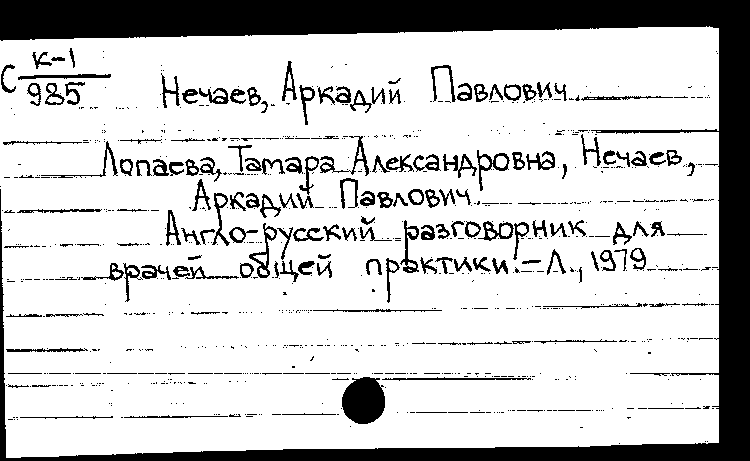 С К-1/985
Нечаев, Аркадий Павлович.
Лопаева, Тамара Александровна, Нечаев,
Аркадий Павлович.
Англо-русский разговорник для
врачей общей практики.-Л., 1979